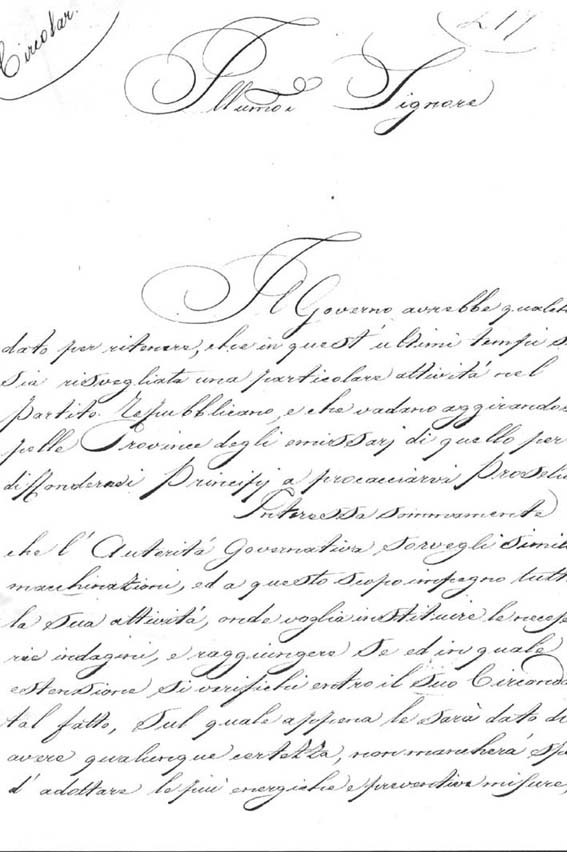 Circolar.
217
Illumo: Signore
Il Governo avrebbe qualch
dato per ritenere, che in quest'ultimi tempi s
sia risvegliata una particolare attività nel
Partito Repubblicano, e che vadano aggirandos
pelle Province degli emissarj di quello per
diffondere i Principj a procacciarvi Proseli
Interessa sommamente
che l'Autorità Governativa sorvegli simil
macchinazioni, ed a questo scopo impegno tutt
la sua attività, onde voglia instituire le necess
rie indagini, e raggiungere se ed in quale
estensione si verifichi entro il suo Circonda
tal fatto, sul quale appena le sarà dato di
avere qualunque certezza, non mancherà
d'adottare le più energiche e preventive misure,